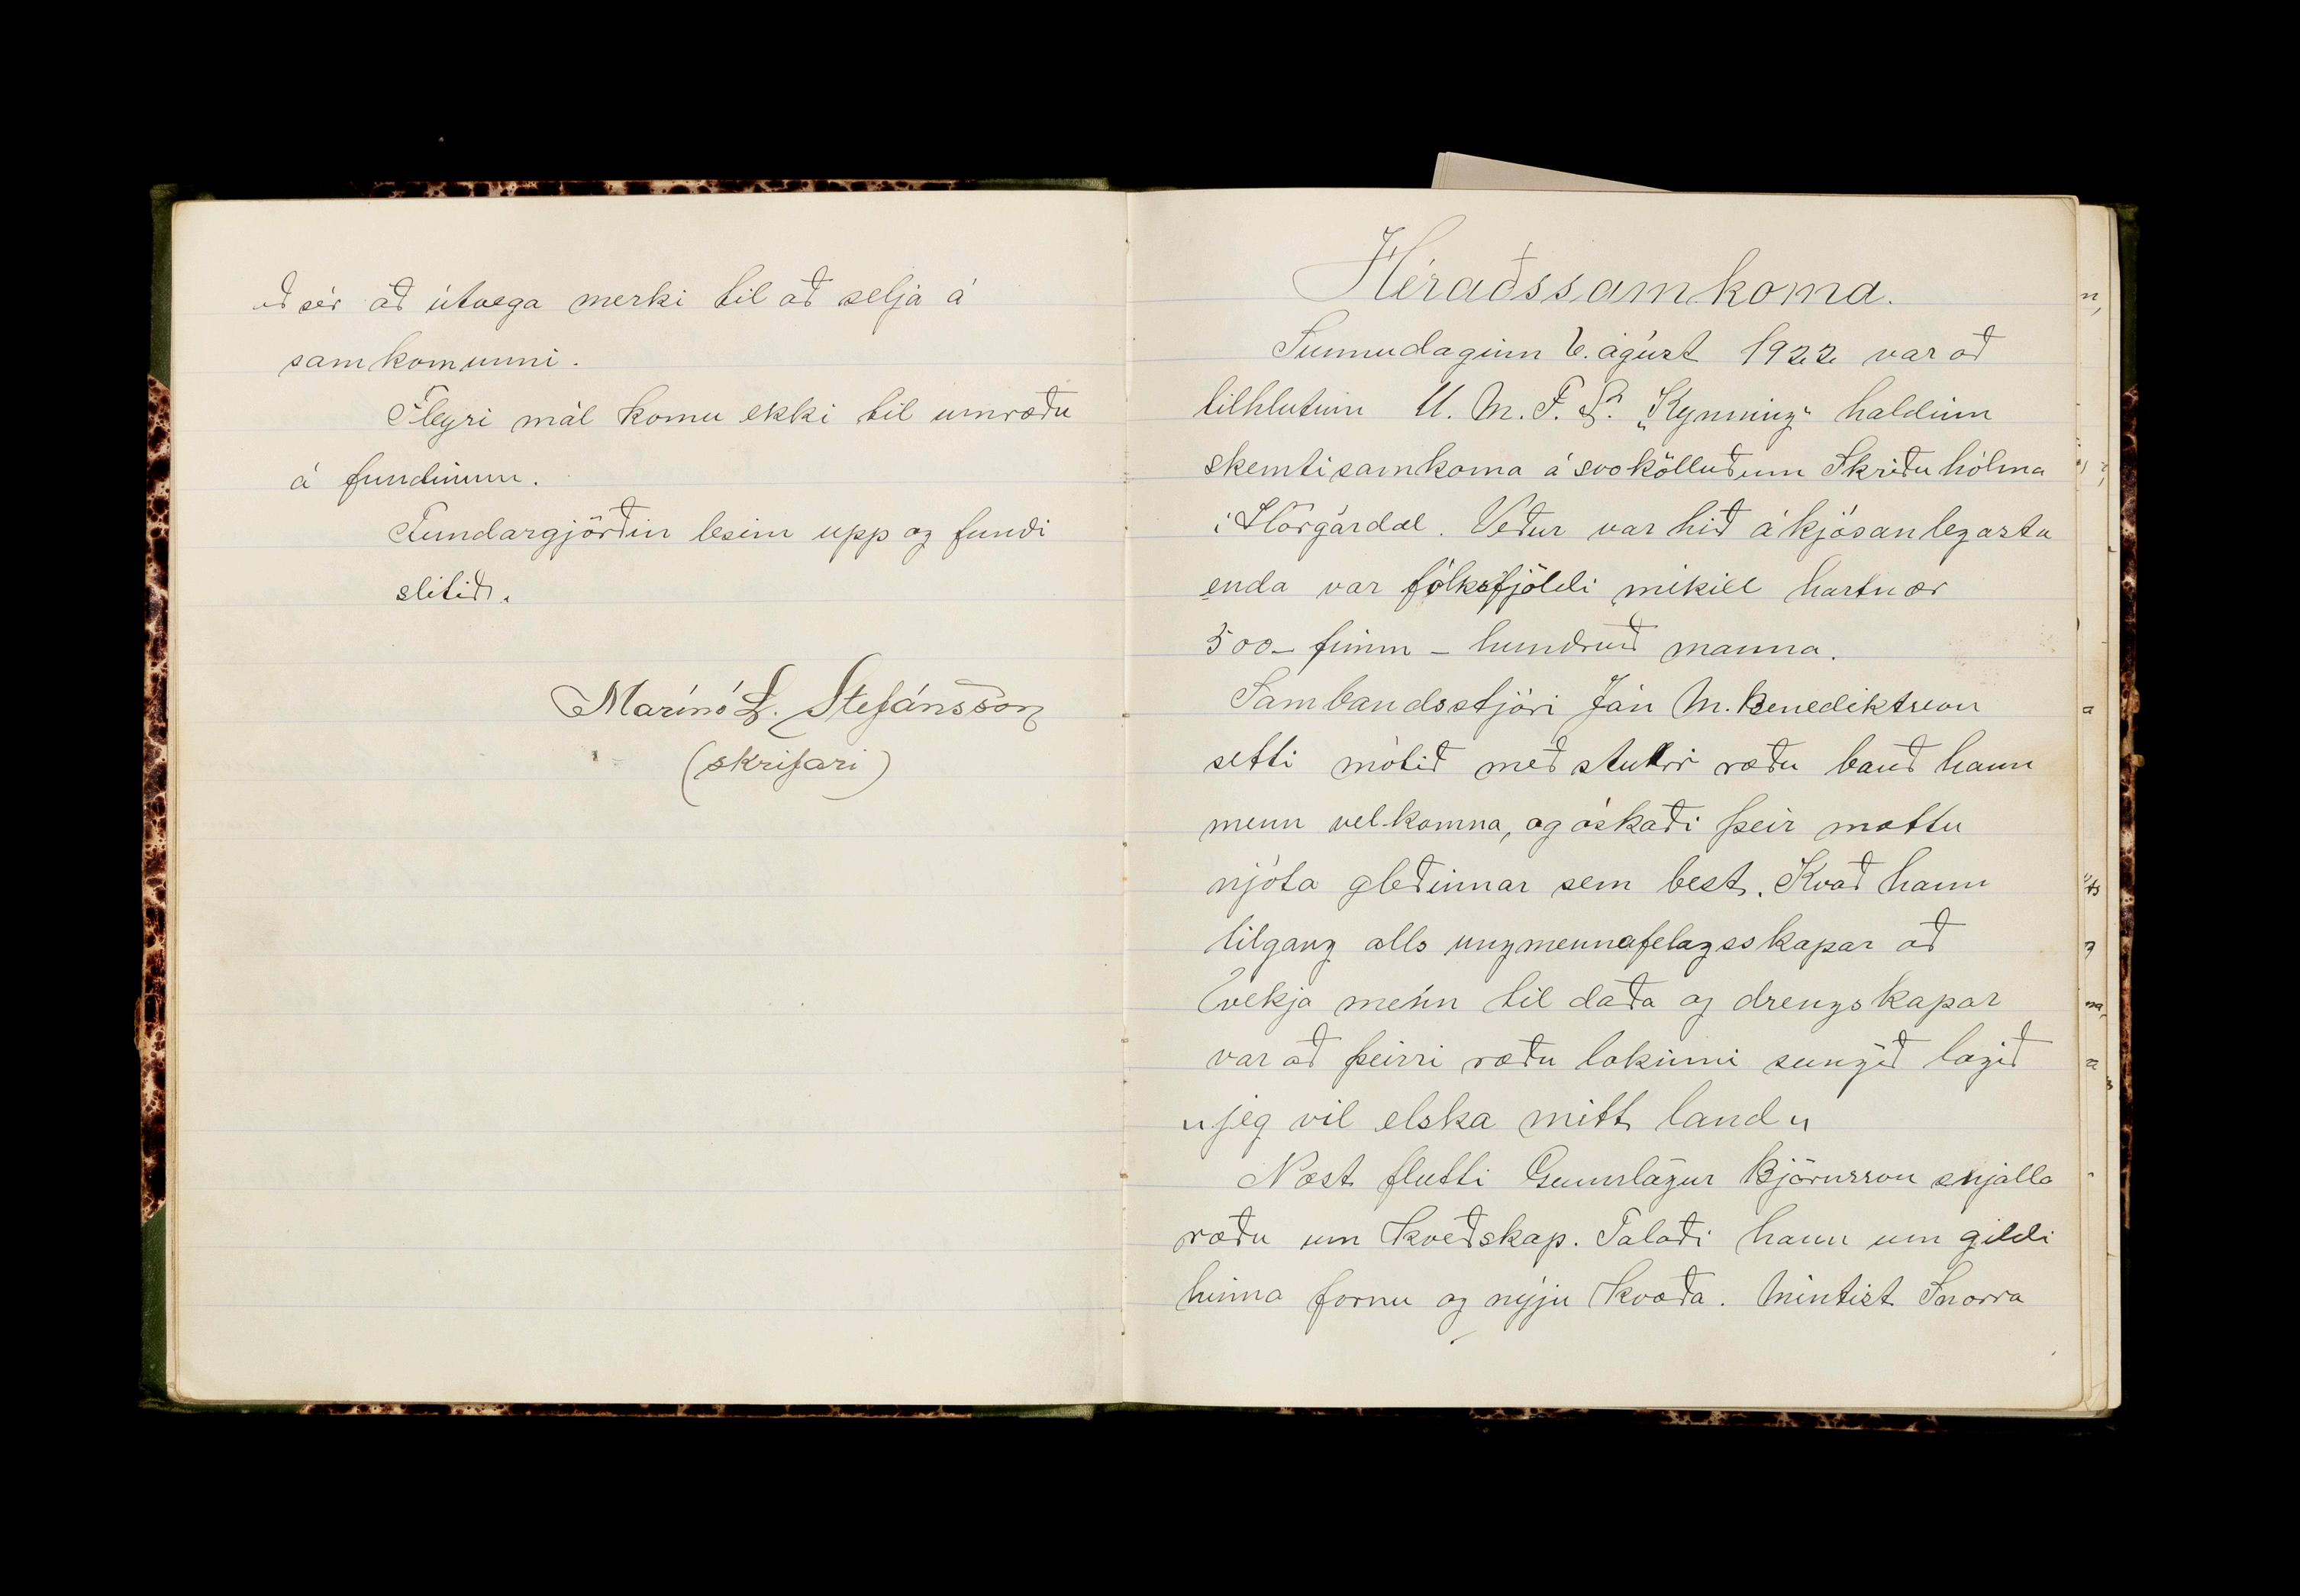 að sér að útvega merki til að selja á
samkomunni.
Fleyri mál komu ekki til umræðu
á fundinum.
Fundargjörðin lesin upp og fundi
slitið.
Marínó L. Stefánsson
(skrifari)
Héraðssamkoma.
Sunnudaginn 6. ágúst 1922 var að
tilhlutun U. M. F. S. „Kynning“ haldin
skemtisamkoma á svokölluðum Skriðuhólma
i Hörgárdal. Veður var hið ákjósanlegasta
enda var fólksfjöldi mikill hartnær
500 - fimm - hundruð manna.
Sambandsstjóri Ján M. Benediktsson
setti mótið með stuttri ræðu bauð hann
menn vel-komna, og óskaði þeir mættu
njóta gleðinnar sem best. Kvað hann
tilgang alls ungmennafelagsskapar að
vekja menn til daða og drengskapar
var að þeirri ræðu lokinni sungið lagið
„jeg vil elska mitt land“
Næst flutti Gunnlágur Björnsson snjalla
ræðu um kveðskap. Talaði hann um gildi
hinna fornu og nýju kvæða. Mintist Snorra